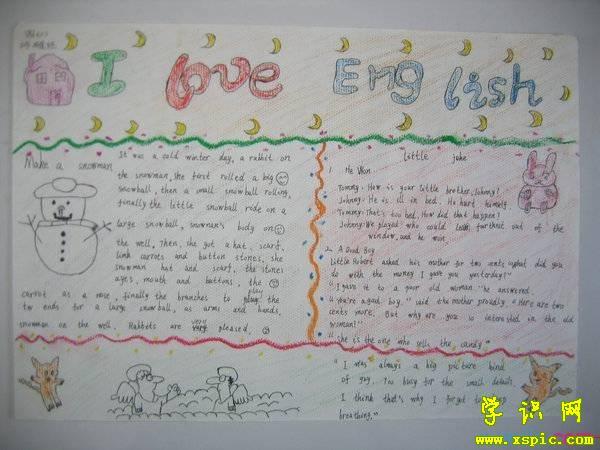 I love English
Make a snowman It was a cold winter day, a rabbit on
the snowman, she first rolled a big
snowball, then a small snowball rolling,
finally the little snowball ride on a
large snowball, snowman's body on
the well, Then, she got a hat, scarf,
link carrots and button stones, she
snowman hat and scarf, the stones
eyes, mouth and buttons, the
carrot as a nose, finally the branches to play the
two ends for a large snowball, as arms and hands,
snowman on the well. Rabbits are very pleased,
Little joke
1. He Won
Tommy: How is your little brother, Johnny?
Johnny: He is ill in bed. He hurt himself
Tommy: That's too bad. How did that happen?
Johnny: We played who could lean furthest out of the
window, and he won
2. A Good Boy
Little Robert asked his mother for two cents. "what did you
do with the money I gave you yesterday?"
"I gave it to a poor old woman." he answered
"you're a good boy," said the mother proudly. "Here are two
cents more. But why are you so interested in the old
woman?"
"she is the one who sells the candy."
"I was always a big picture kind
of guy. Too busy for the small details.
I think that's why I forgot to
breathing."
学识网
www.xspic.com